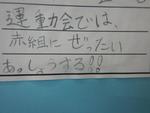 運動会では、
赤組にぜったい
あっしょうする!!